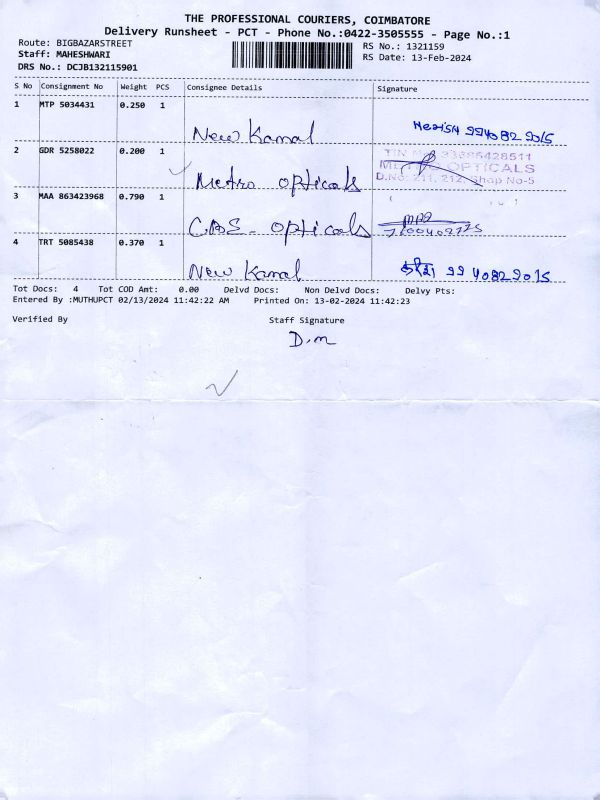 THE PROFESSIONAL COURIERS, COIMBATORE
Delivery Runsheet - PCT - Phone No.:0422-3505555 - Page No.:1
Route: BIGBAZARSTREET
RS No.: 1321159
Staff: MAHESHWARI
RS Date: 13-Feb-2024
DRS No.: DCJB132115901
S No Consignment No Weight PCS Consignee Details Signature
1 MTP 5034431 0.250 1
New Kamal
2 GDR 5258022 0.200 1
TIN No. 33585428511
METRO OPTICALS
D.No. 211, 212, Shop No-5
Metro opticals
3 MAA 863423968 0.790 1
opticals
4 TRT 5085438 0.370 1
New Kamal
Tot Docs: 4 Tot COD Amt: 0.00 Delvd Docs: Non Delvd Docs: Delvy Pts:
Entered By :MUTHUPCT 02/13/2024 11:42:22 AM Printed On: 13-02-2024 11:42:23
Verified By Staff Signature
D.m